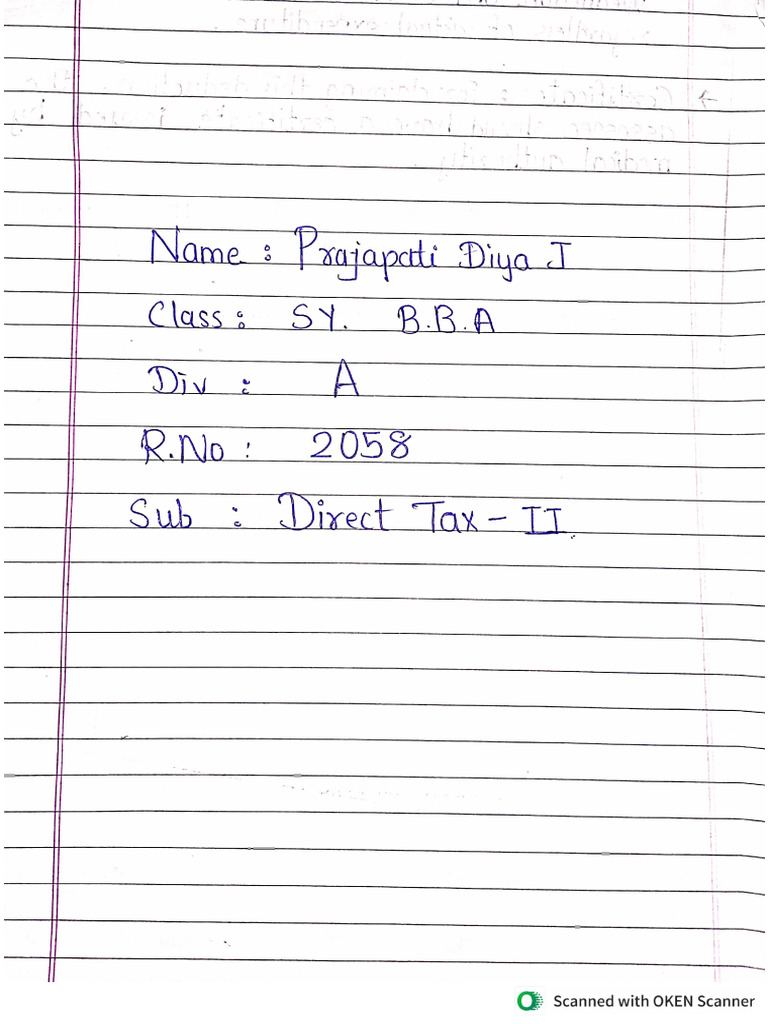 Name : Prajapati Diya J
Class : SY. B.B.A
Div : A
R.No : 2058
Sub : Direct Tax - II.
Scanned with OKEN Scanner